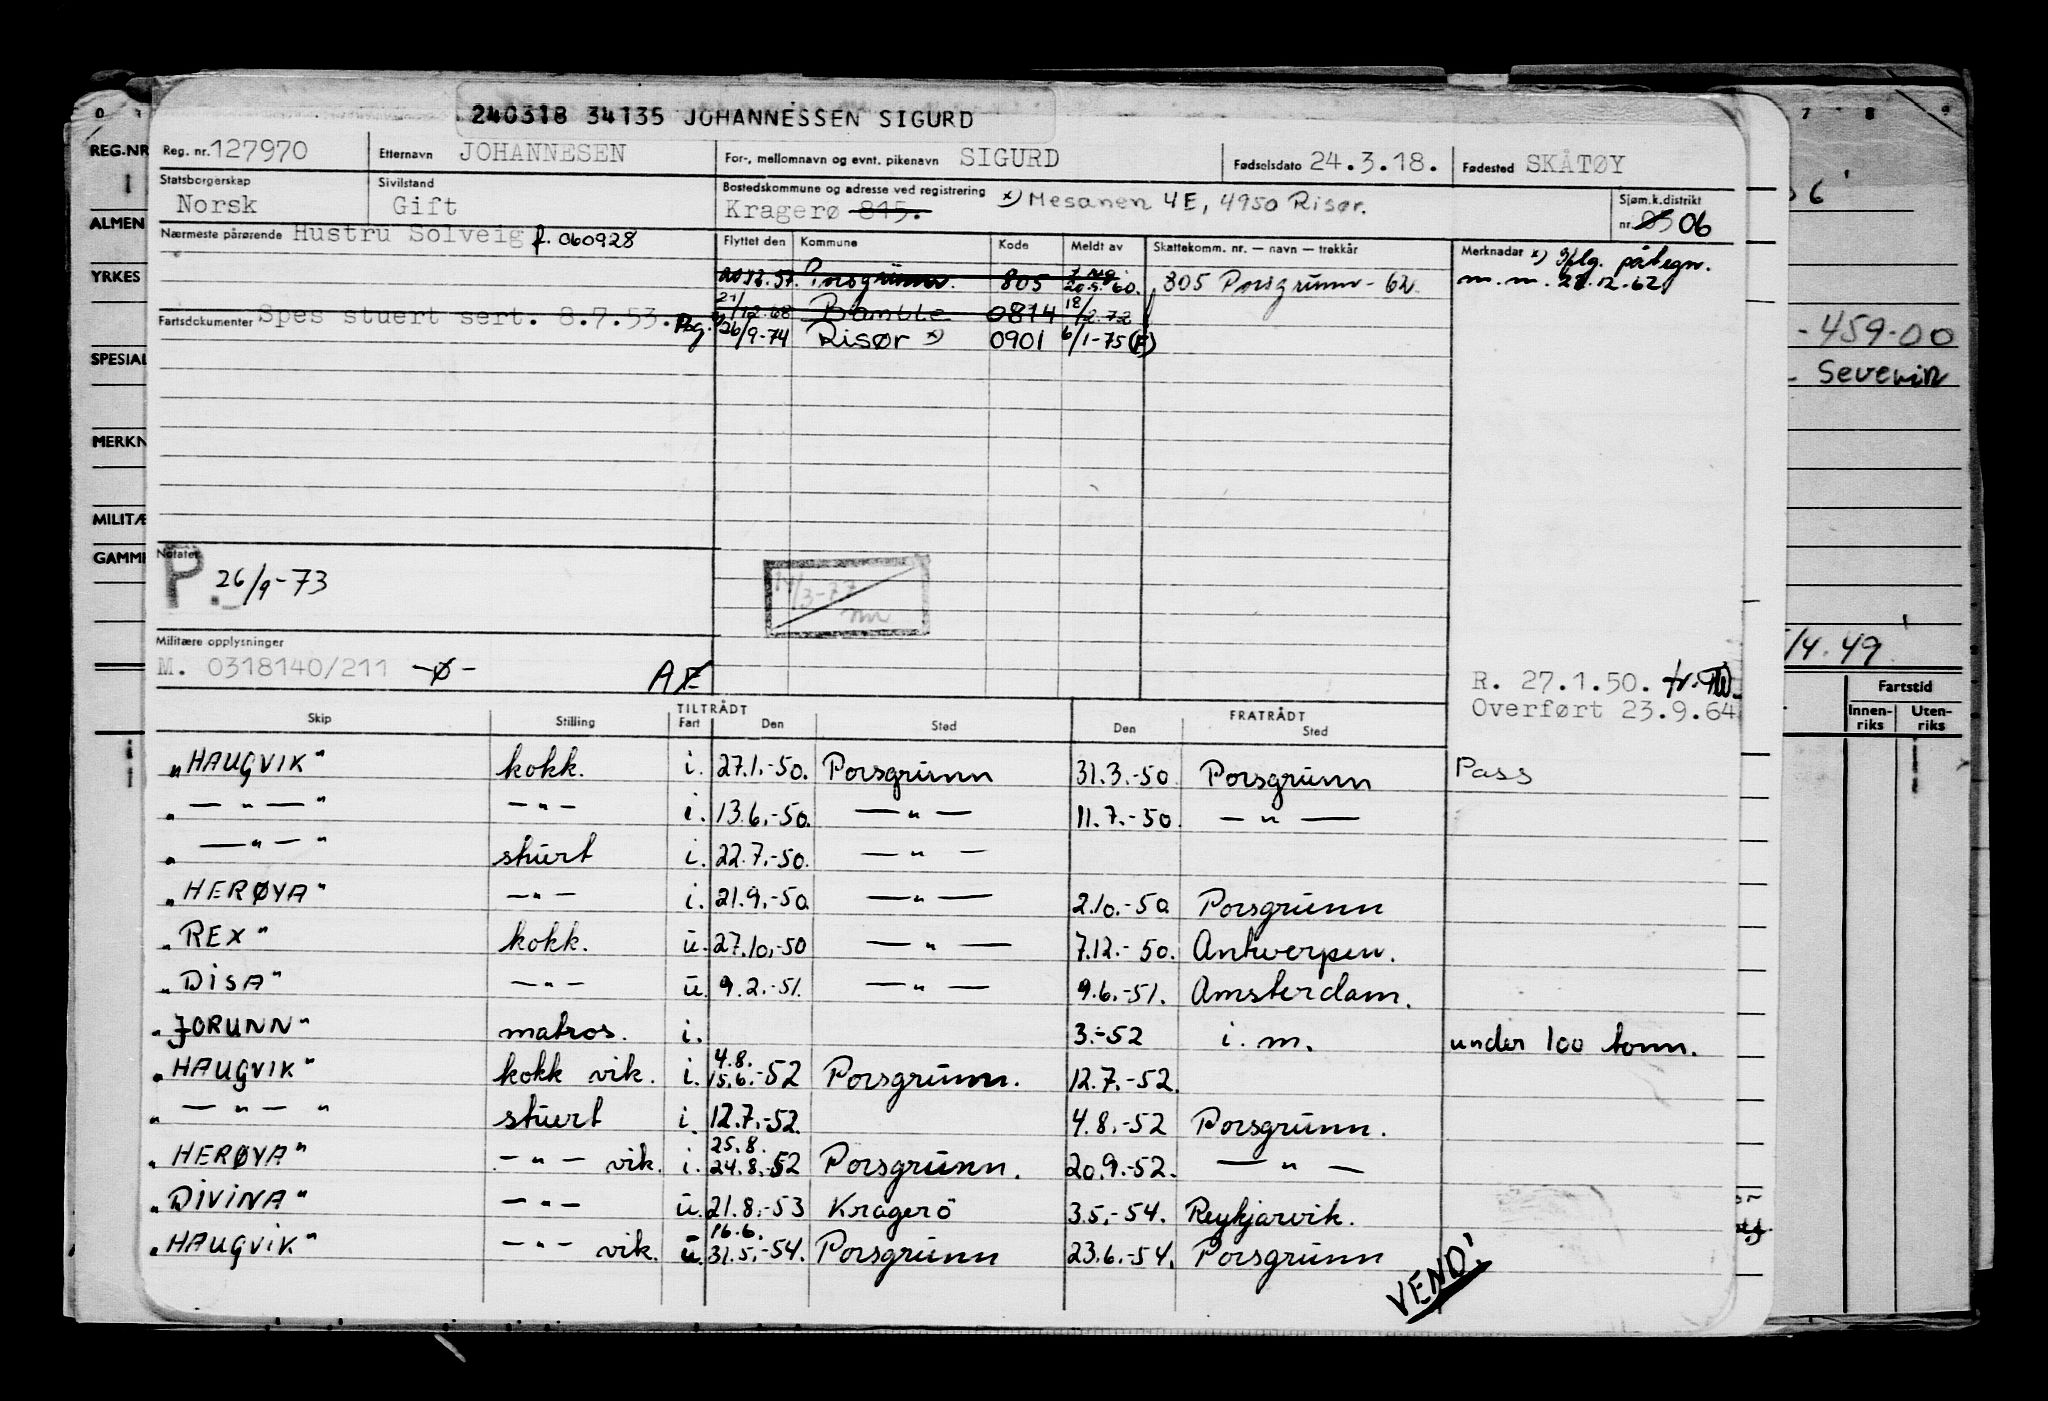 240318 34135 JOHANNESSEN SIGURD
Reg. nr. 127970 Etternavn JOHANNESEN For-, mellomnavn og evnt. pikenavn SIGURD Fødselsdato 24.3.18. Fødested SKÅTØY
Statsborgerskap Norsk Sivilstand Gift Bostedskommune og adresse ved registrering Kragerø 815. x) Mesanen 4E, 4950 Risør. Sjøm.k.distrikt nr. 05 06
Nærmeste pårørende Hustru Solveig f. 060928 Flyttet den Kommune Kode Meldt av Skattekomm. nr. — navn — trekkår Merknader x) Iflg. påtegn.
Porsgrunn. 805 20.5.60. 805 Porsgrunn - 62 m.m. 28.12.62
Fartsdokumenter Spes stuert sert. 8.7.53. 21/12-68 Bamble 0814 18/2.72
26/9-74 Risør x) 0901 6/1-75 (F)
Notater
P. 26/9-73
Militære opplysninger
M. 0318140/211 -ø- AE R. 27.1.50.
Overført 23.9.64
TILTRÅDT FRATRÅDT
Skip Stilling Fart Den Sted Den Sted
"HAUGVIK" kokk. i. 27.1.-50. Porsgrunn 31.3.-50. Porsgrunn Pass
" — " — " — " — i. 13.6.-50. — " — 11.7.-50. — " —
" — " — " stuert i. 22.7.-50. — " —
"HERØYA" — " — i. 21.9.-50 — " — 2.10.-50 Porsgrunn
"REX" kokk. u. 27.10.-50 — " — 7.12.-50. Antwerpen.
"DISA" — " — u. 9.2.-51. — " — 9.6.-51. Amsterdam.
"JORUNN" matros. i. 3.-52 i. m. under 100 tonn.
"HAUGVIK" kokk vik. i. 4.8. 15.6.-52 Porsgrunn. 12.7.-52.
" — " — " stuert i. 12.7.-52. 4.8.-52 Porsgrunn.
"HERØYA" — " — vik. i. 25.8. 24.8.-52 Porsgrunn. 20.9.-52. — " —
"DIVINA" — " — u. 21.8.-53 Kragerö 3.5.-54. Reykjarvik.
"HAUGVIK" — " — vik. u. 16.6. 31.5.-54. Porsgrunn 23.6.-54. Porsgrunn
VEND!
REG.NR
ALMEN
YRKES
SPESIAL
MERKN
MILITÆ
GAMM
7 8 9
-459-00
Severin
/4.49
Fartstid
Innen-riks Uten-riks